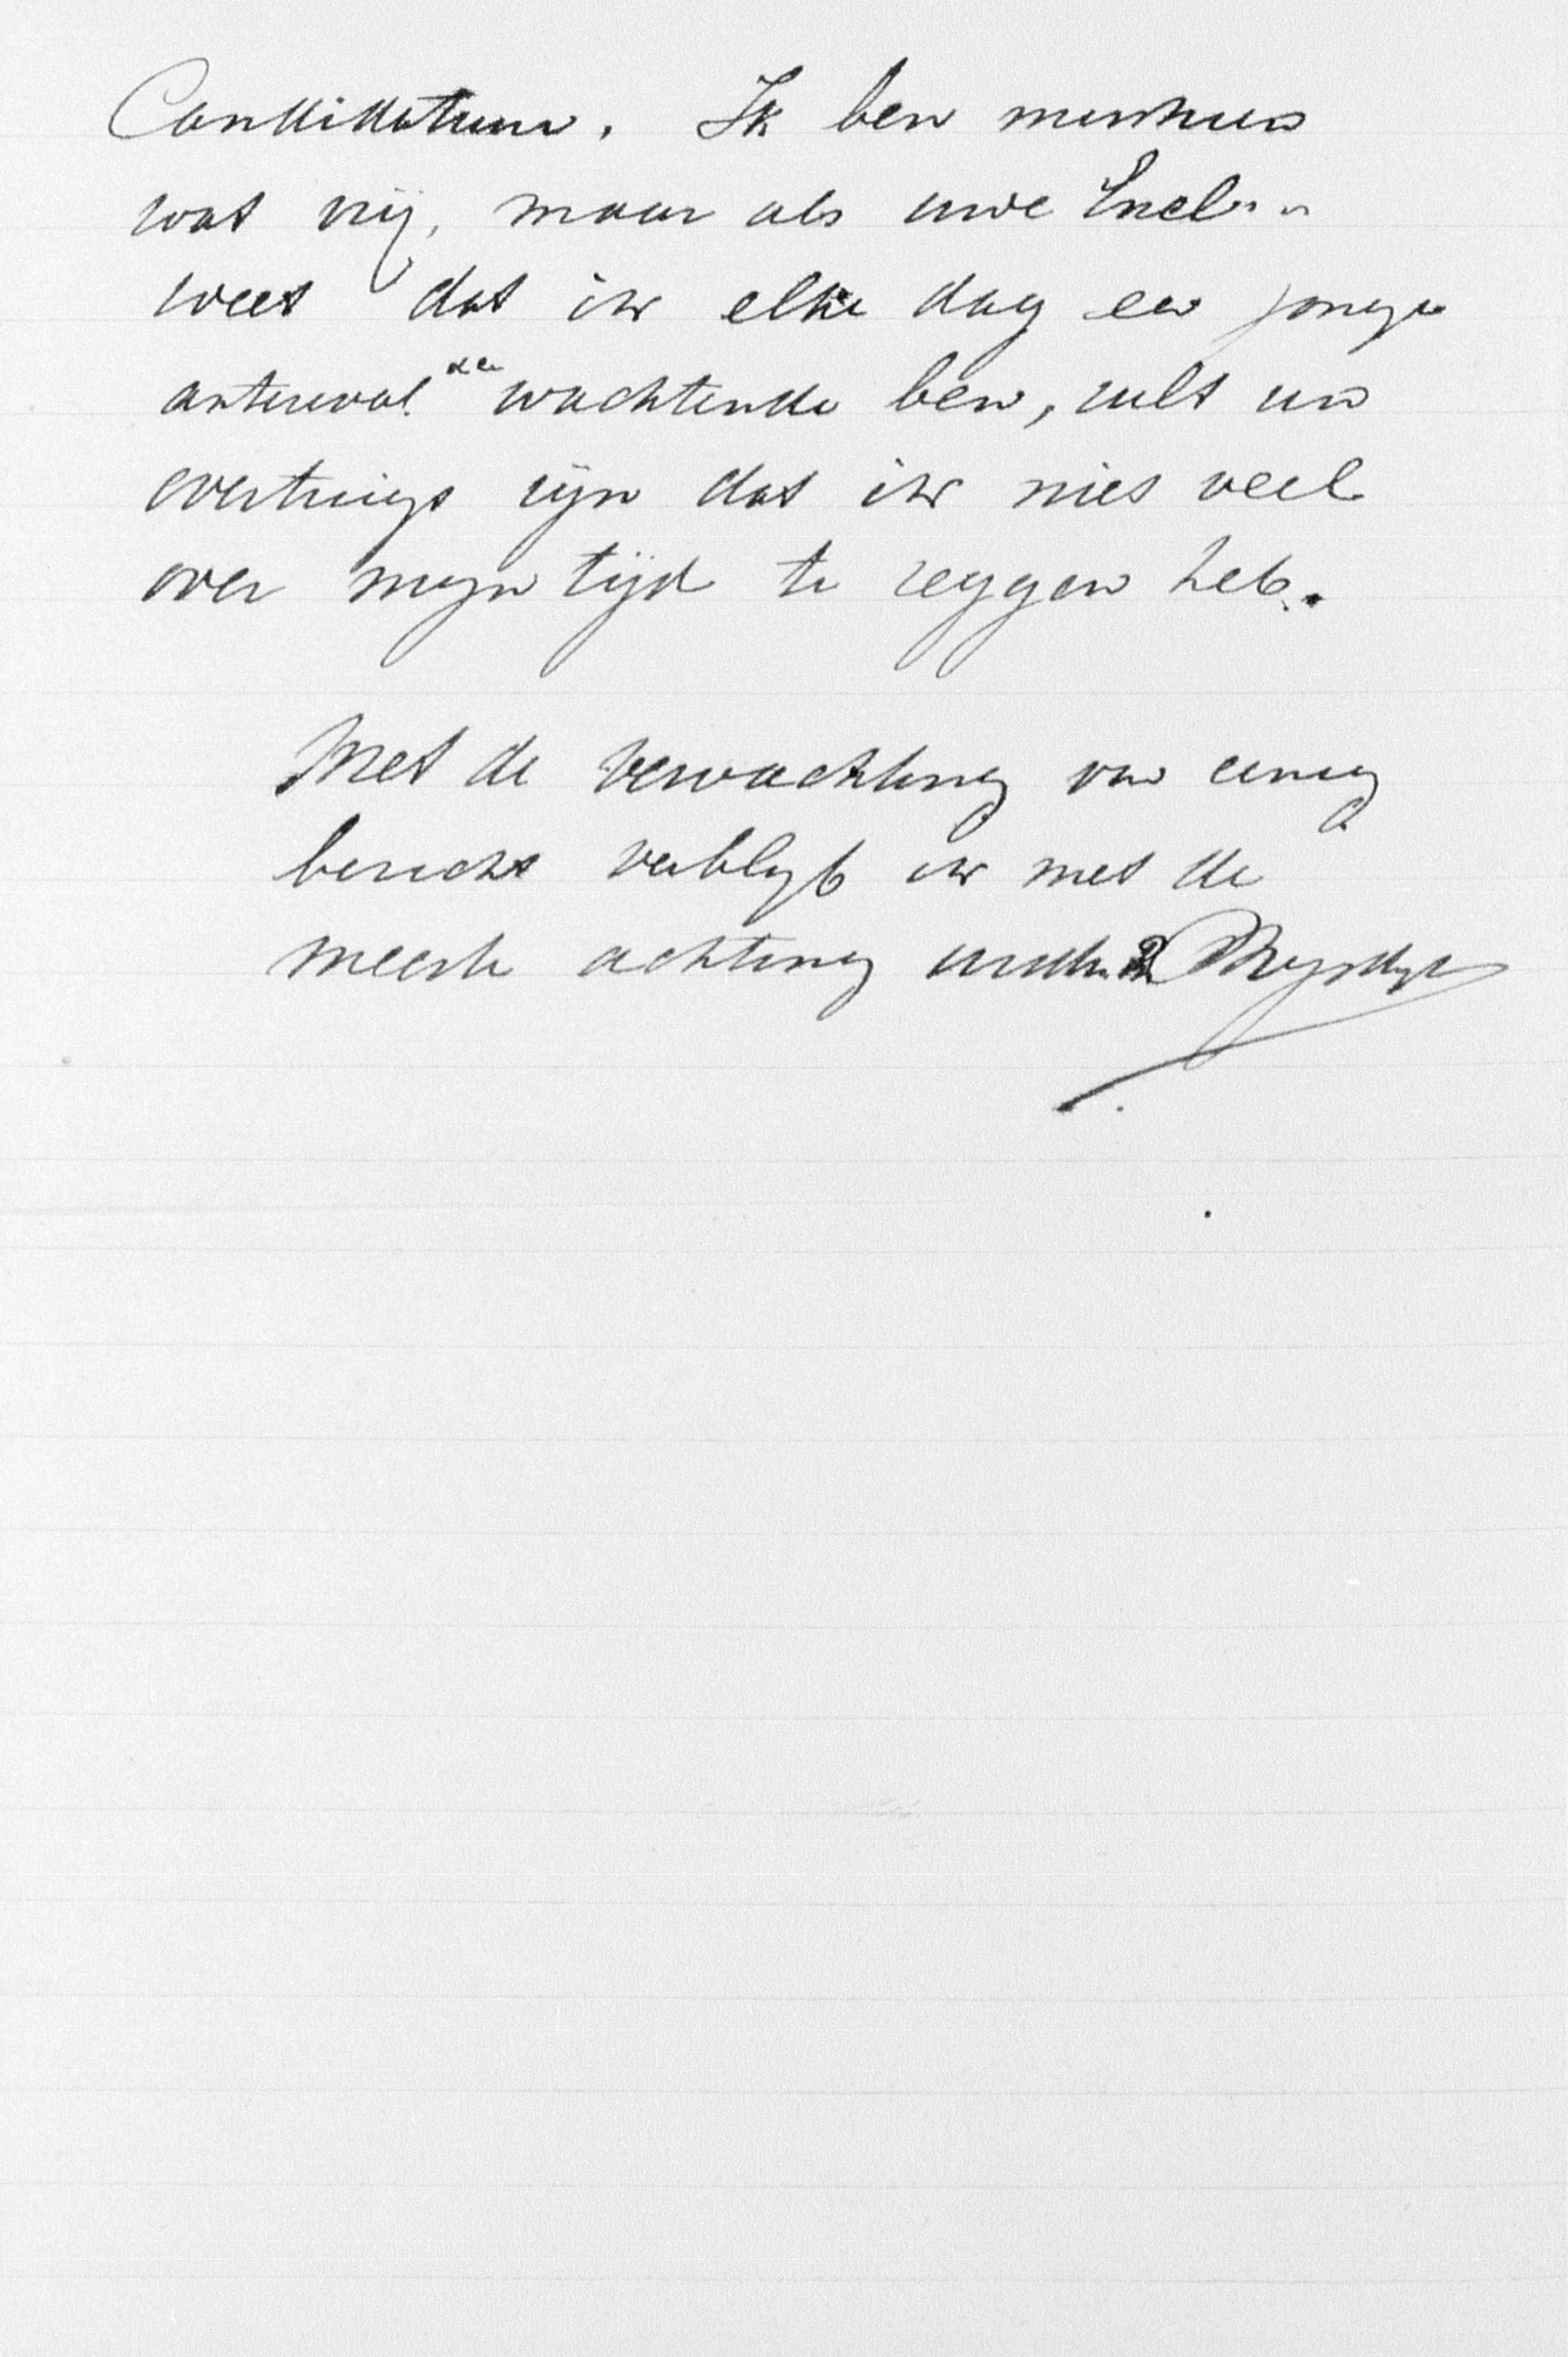 Candidatuur. Ik ben misschien
wat vrij, maar als uwe Excel..
weet dat ik elke dag een jonge
wachtende ben, zult u
overtuigd zijn dat ik niet veel
over mijn tijd te zeggen heb.
Met de verwachting van eenig
bericht verblijf ik met de
meeste achting